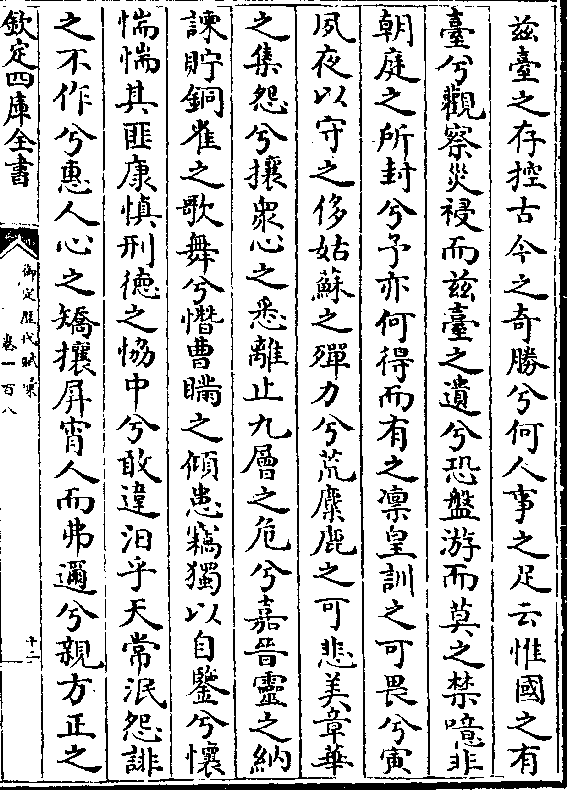 兹臺之存控古今之奇勝兮何人事之足云惟國之有
臺兮觀察災祲而兹臺之遺兮恐盤游而莫之禁噫非
朝庭之所封兮予亦何得而有之凛皇訓之可畏兮寅
夙夜以守之侈姑蘇之殫力兮荒麋鹿之可悲美章華
之集怨兮攘衆心之悉離止九層之危兮嘉晉靈之納
諫貯銅雀之歌舞兮憯曹瞞之傾患竊獨以自鑒兮懷
惴惴其匪康慎刑德之恊中兮敢違汩乎天常泯怨誹
之不作兮惠人心之矯攘屏宵人而弗邇兮親方正之
欽定四庫全書
御定歷代賦彙
卷一百八
十二